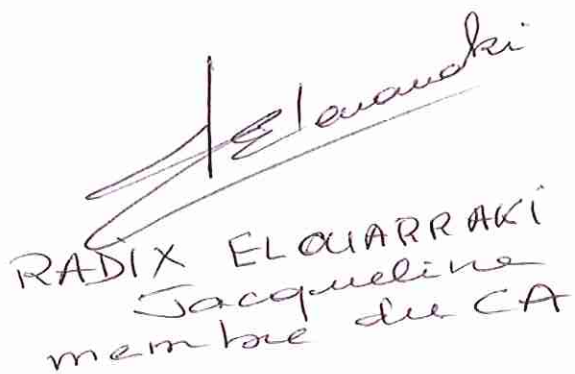 J Elouarraki
RADIX ELOUARRAKI
Jacqueline
membre du CA